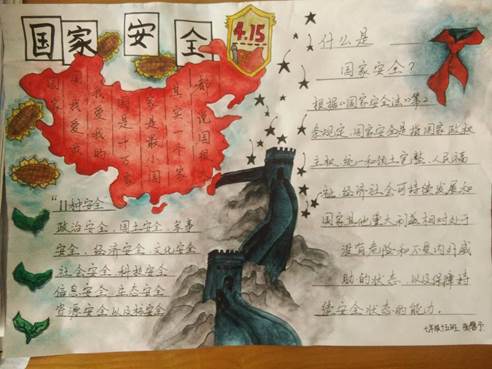 国家安全
4.15
都说国很
其实一个家
家是最小国
国是千万家
我爱我的
国我爱我
国家
"11种安全
政治安全、国土安全、军事
安全、经济安全、文化安全
社会安全、科技安全
信息安全、生态安全
资源安全以及核安全
什么是
国家安全?
根据《国家安全法》第2
条规定,国家安全是指国家政权
主权、统一和领土完整、人民福
祉、经济社会可持续发展和
国家其他重大利益相对处于
没有危险和不受内外威
胁的状态,以及保障持
续安全状态的能力.
七年级十五班